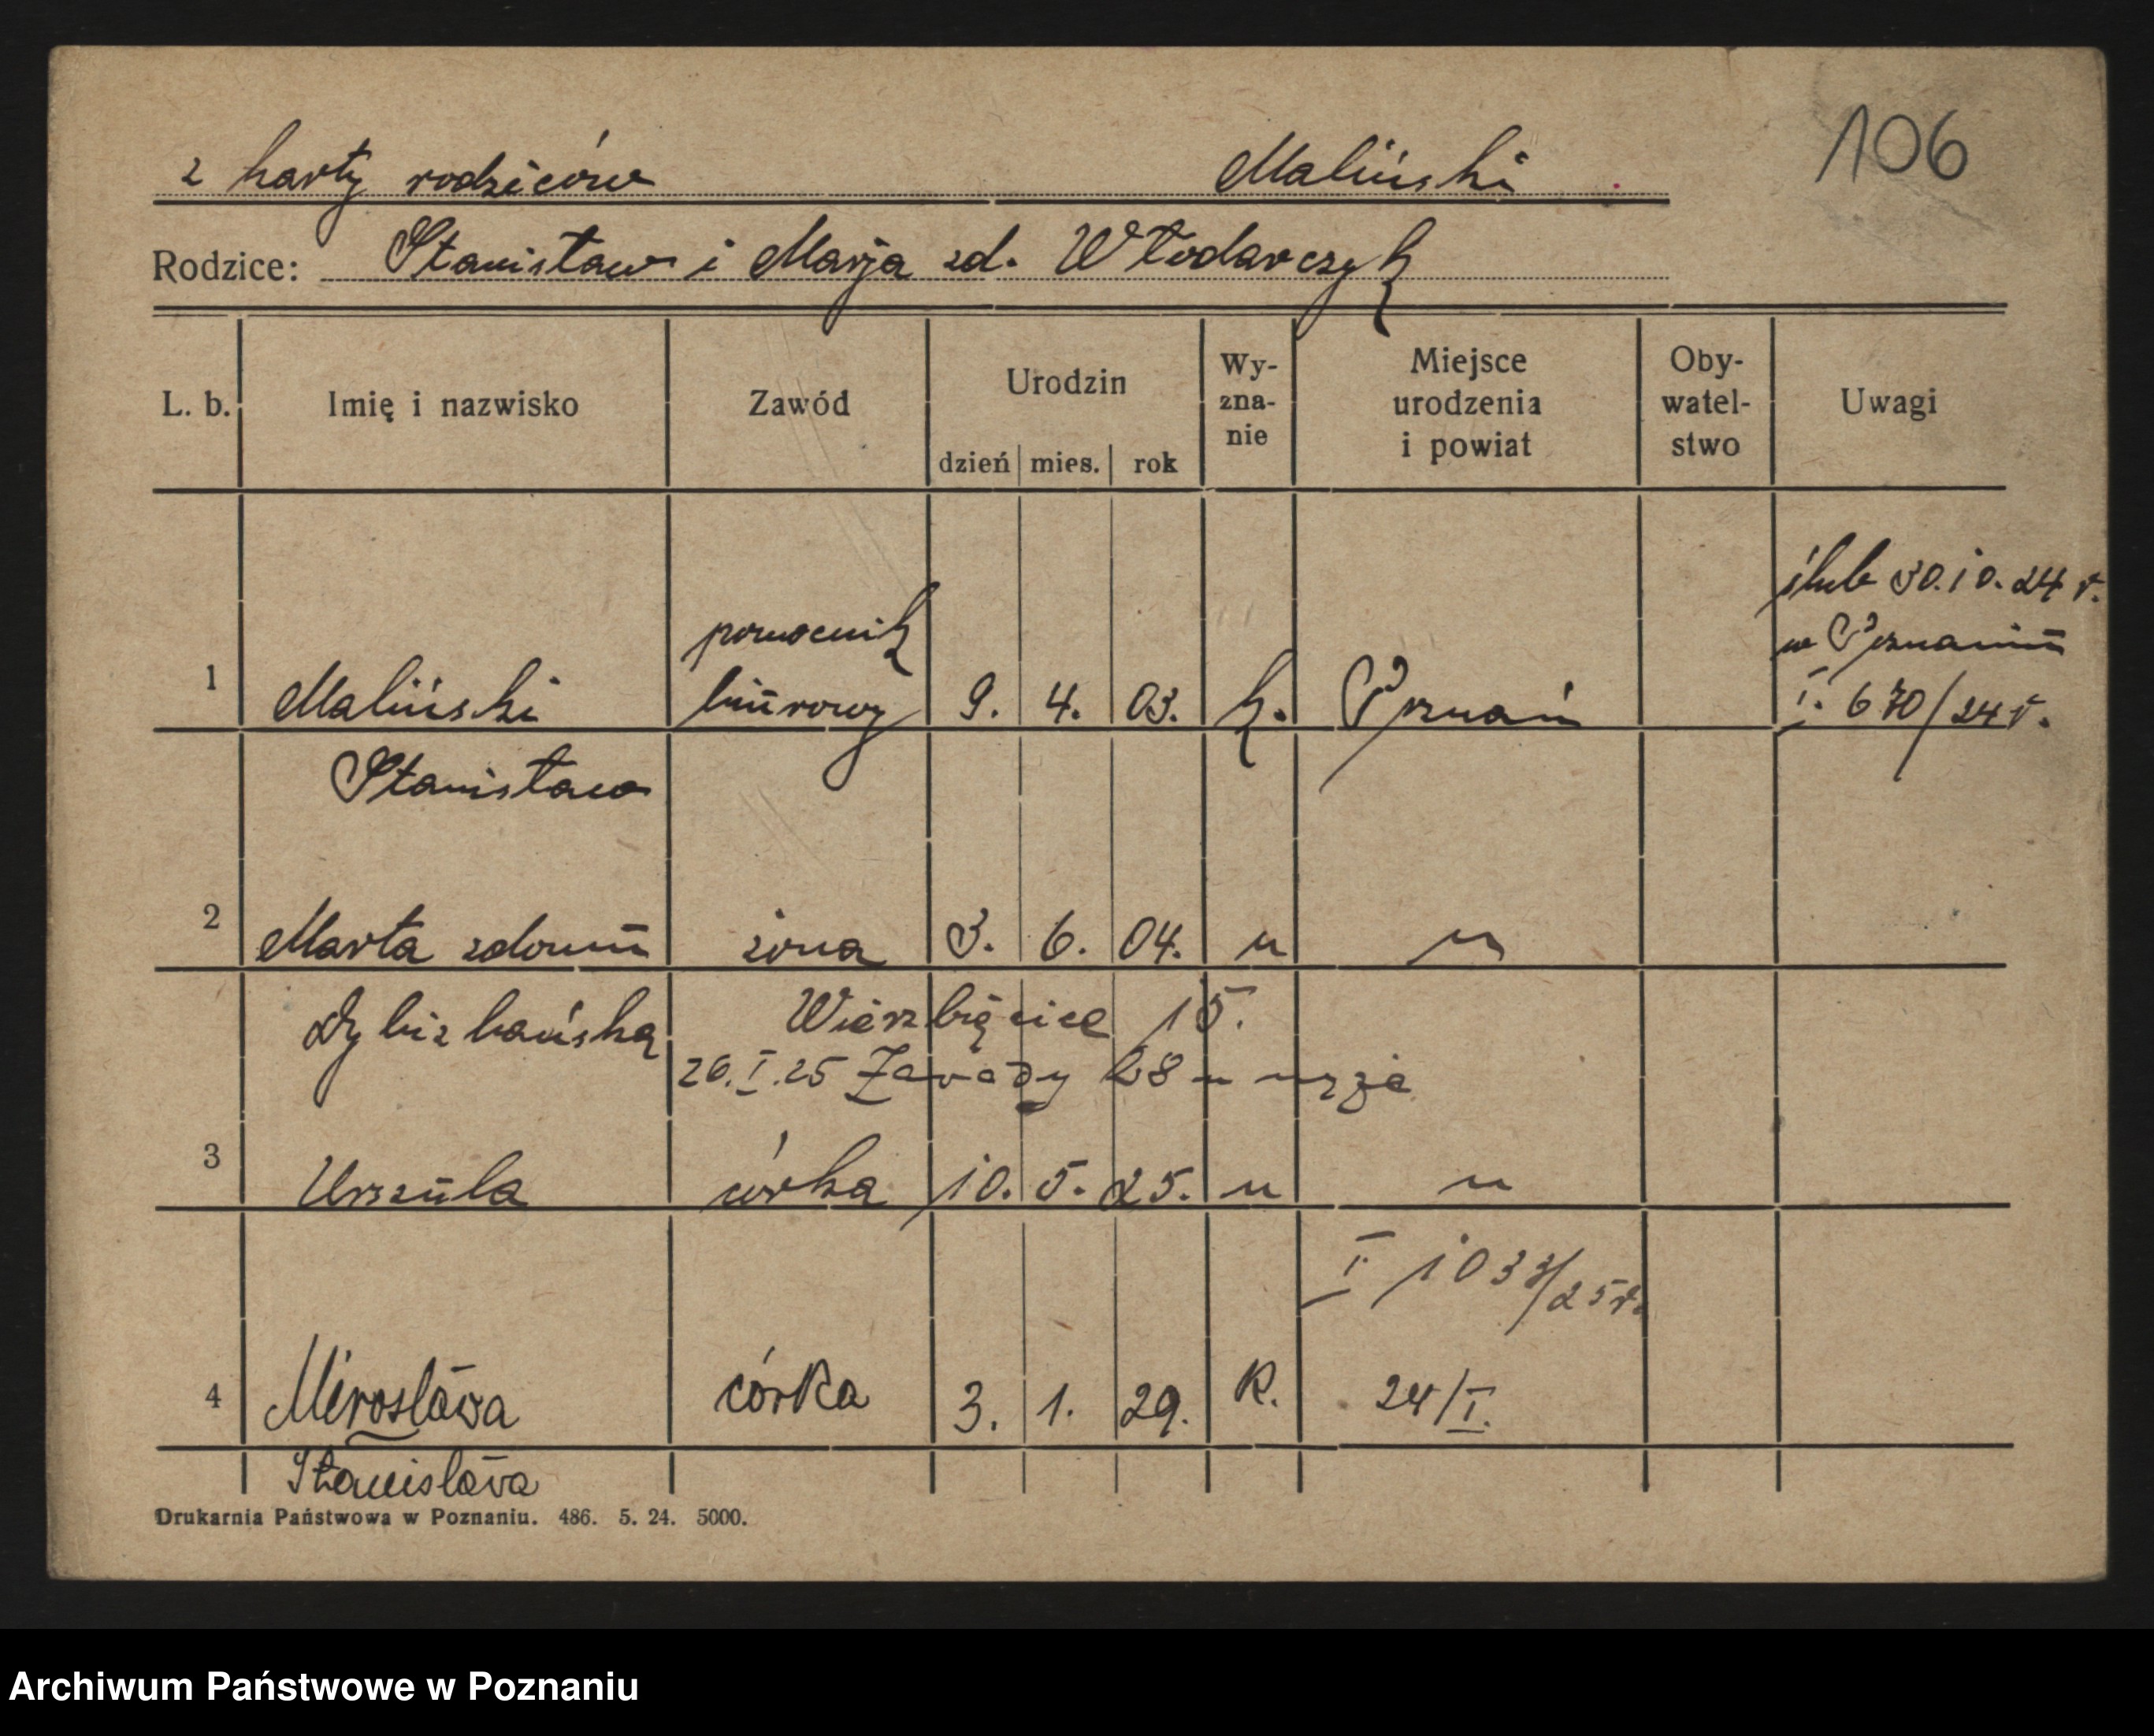 106
z karty rodziców Maliński
Rodzice: Stanisław i Marja zd. Włodarczyk
L. b. Imię i nazwisko Zawód Urodzin Wy-zna-nie Miejsce urodzenia i powiat Oby-watel-stwo Uwagi
dzień mies. rok
ślub 30.10.24 r.
pomocnik w Poznaniu
1 Maliński biurowy 9. 4. 03. k. Poznań I. 670/24 r.
Stanisław
2 Marta z domu żona 3. 6. 04. " "
Dybizbańska Wierzbięcice 15.
26.I.25 Zawady 28
3 Urszula córka 10. 5. 25. " "
I 1033/25 r.
4 Mirosława córka 3. 1. 29. R. 24/I.
Stanisława
Drukarnia Państwowa w Poznaniu. 486. 5. 24. 5000.
Archiwum Państwowe w Poznaniu